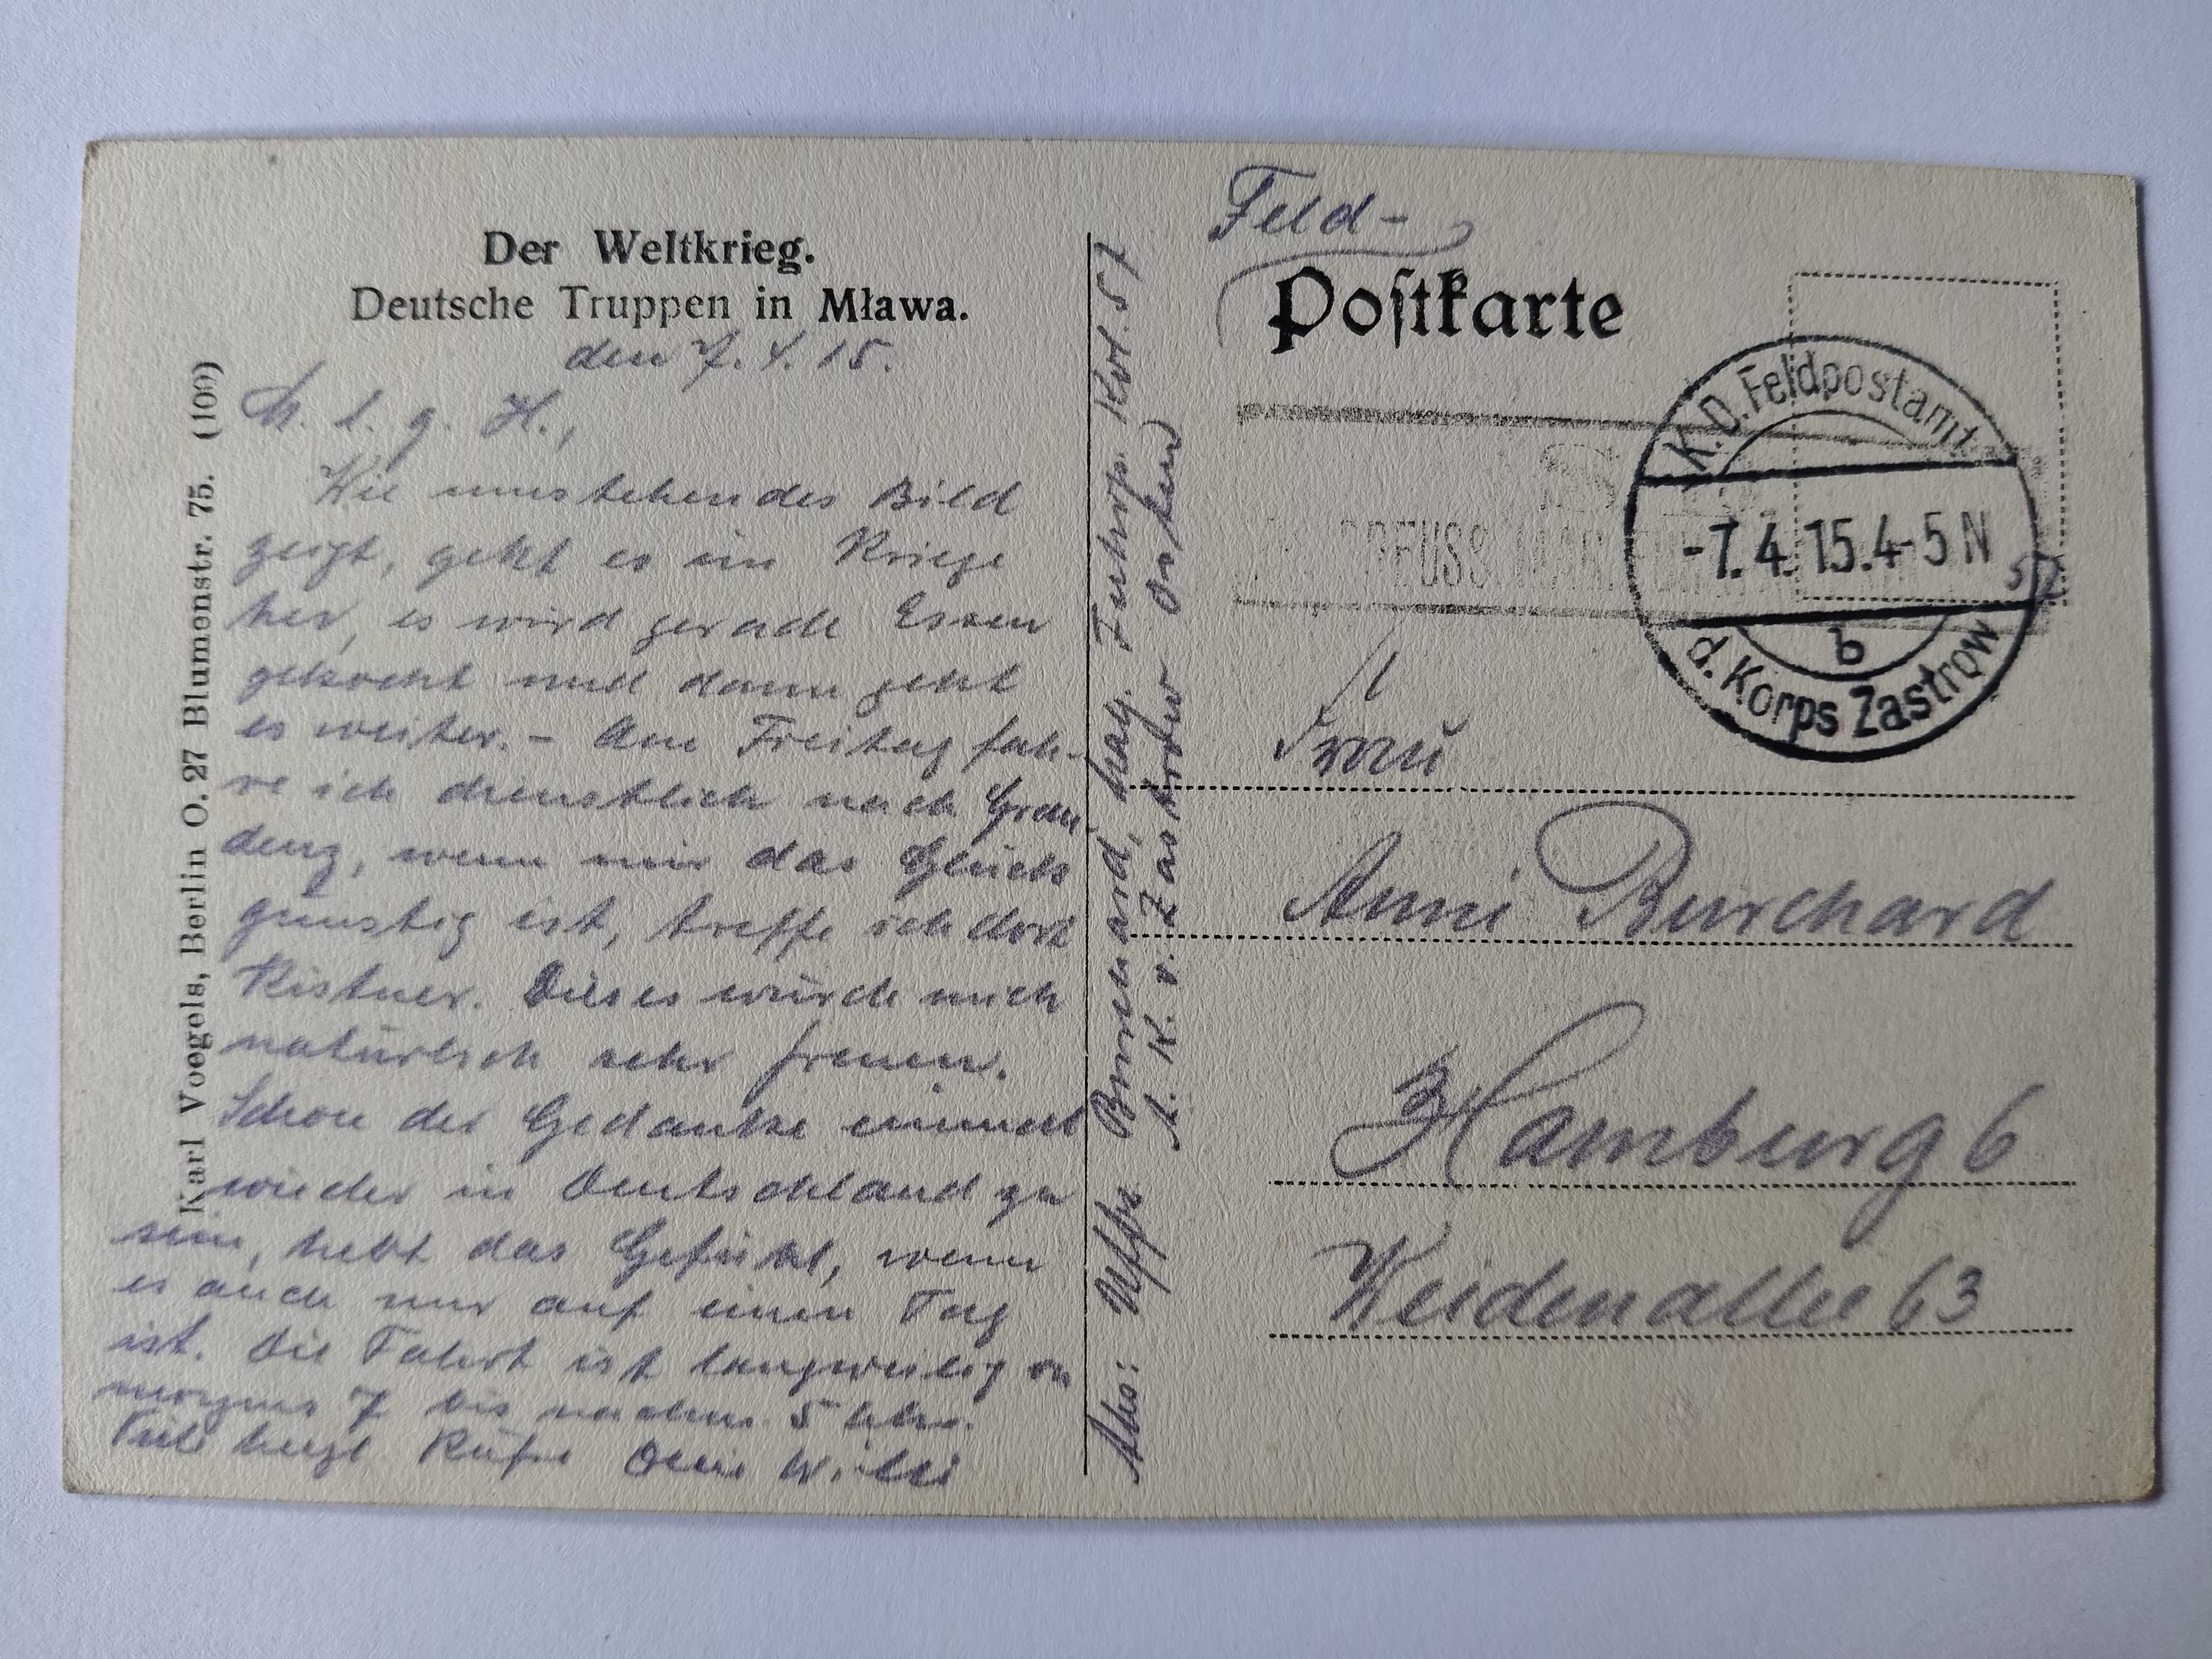 Der Weltkrieg.
Deutsche Truppen in Mława.
den 7. 4. 15.
M. l. g. H.,
Wie umstehendes Bild
zeigt, geht es im Kriege
her, es wird gerade Essen
gekocht und dann geht
es weiter. – Am Freitag fah-
re ich dienstlich nach Grau-
denz, wenn mir das Glück
günstig ist, treffe ich dort
Kistner. Dieses würde mich
natürlich sehr freuen.
Schon der Gedanke einmal
wieder in Deutschland zu
sein, hebt das Gefühl, wenn
es auch nur auf einen Tag
ist. Die Fahrt ist langweilig von
morgens 7 bis nachm. 5 Uhr.
Viele herzl Küsse Dein Willi
Karl Voegels, Berlin O. 27 Blumenstr. 75. (100)
Abs: Uffz. Burchard, Mag. Fuhrp. Kol. 57
A. K. v. Zastrow Osten
Feld-
Postkarte
K.D. Feldpostamt
-7.4.15.4-5N
b
d. Korps Zastrow
Frau
Anni Burchard
3 Hamburg 6
Weidenallee 63